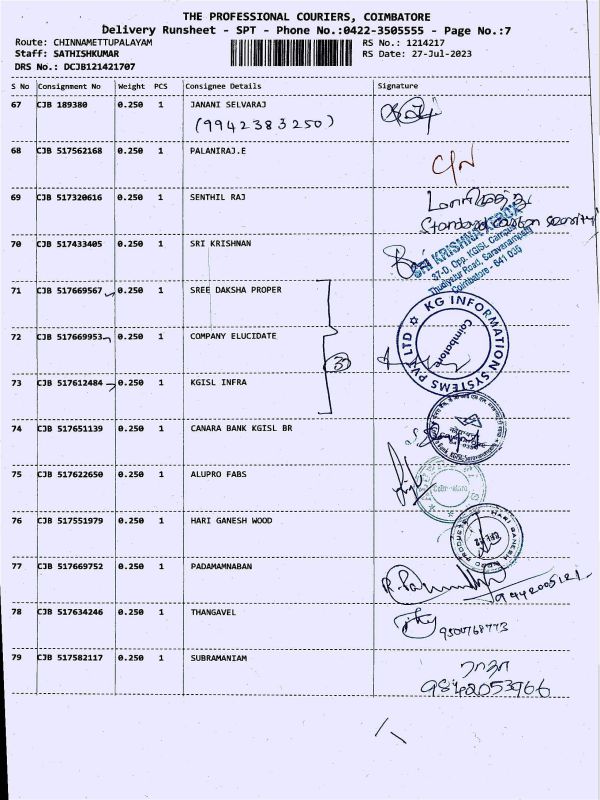 THE PROFESSIONAL COURIERS, COIMBATORE
Delivery Runsheet - SPT - Phone No.:0422-3505555 - Page No.:7
Route: CHINNAMETTUPALAYAM RS No.: 1214217
Staff: SATHISHKUMAR RS Date: 27-Jul-2023
DRS No.: DCJB121421707
S No Consignment No Weight PCS Consignee Details Signature
67 CJB 189380 0.250 1 JANANI SELVARAJ
(9942383250)
68 CJB 517562168 0.250 1 PALANIRAJ.E
69 CJB 517320616 0.250 1 SENTHIL RAJ
70 CJB 517433405 0.250 1 SRI KRISHNAN
37-D, Opp. KGISL Campus
Thudiyalur Road, Saravanampatti
Coimbatore - 641 035
71 CJB 517669567 0.250 1 SREE DAKSHA PROPER
72 CJB 517669953 0.250 1 COMPANY ELUCIDATE
3
KG INFORMATION SYSTEMS PVT LTD
Coimbatore
73 CJB 517612484 0.250 1 KGISL INFRA
74 CJB 517651139 0.250 1 CANARA BANK KGISL BR
75 CJB 517622650 0.250 1 ALUPRO FABS
76 CJB 517551979 0.250 1 HARI GANESH WOOD
HARI GANESH WOOD PRODUCTS
77 CJB 517669752 0.250 1 PADAMAMNABAN
78 CJB 517634246 0.250 1 THANGAVEL
9500768773
79 CJB 517582117 0.250 1 SUBRAMANIAM
9842053966